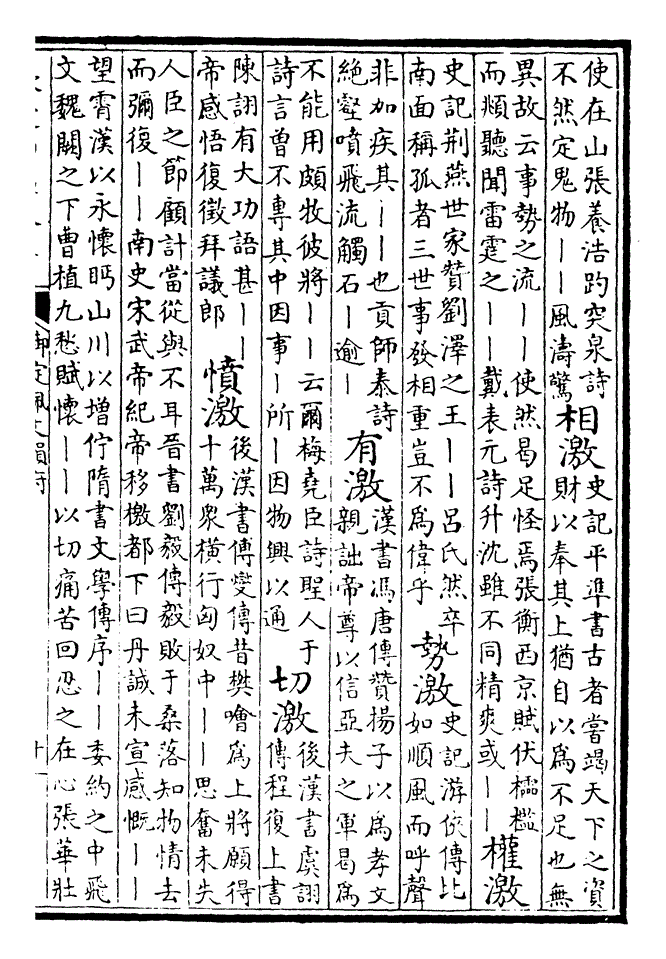 使在山張養浩趵突泉詩
不然定鬼物——風濤驚
相激
史記平準書古者嘗竭天下之資
財以奉其上猶自以爲不足也無
異故云事勢之流——使然曷足怪焉張衡西京賦伏櫺檻
而頫聽聞雷霆之——戴表元詩升沈雖不同精爽或——
權激
史記荆燕世家贊劉澤之王——呂氏然卒
南面稱孤者三世事發相重豈不爲偉乎
勢激
史記游俠傳比
如順風而呼聲
非加疾其——也貢師泰詩
絶壑噴飛流觸石—逾—
有激
漢書馮唐傳贊揚子以爲孝文
親詘帝尊以信亞夫之軍曷爲
不能用頗牧彼將——云爾梅堯臣詩聖人于
詩言曽不專其中因事—所—因物興以通
切激
後漢書虞詡
傳程復上書
陳詡有大功語甚——
帝感悟復徵拜議郎
憤激
後漢書傳燮傳昔樊噲爲上將願得
十萬衆橫行匈奴中——思奮未失
人臣之節顧計當從與不耳晉書劉毅傳毅敗于桑落知物情去
而彌復——南史宋武帝紀帝移檄都下曰丹誠未宣感慨——
望霄漢以永懷眄山川以增佇隋書文學傳序——委約之中飛
文魏闕之下曹植九愁賦懷——以切痛苦回忍之在心張華壯
御定佩文韻府